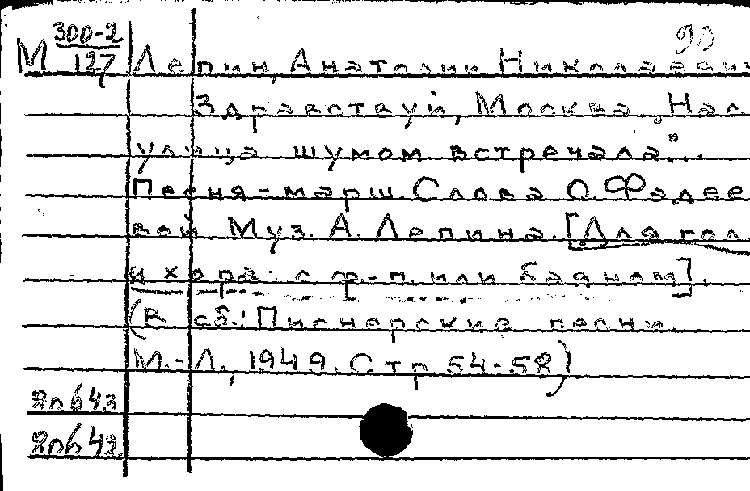 90
М 300-2
127
Лепин, Анатолий Николаевич
Здравствуй, Москва. „Нас
улица шумом встречала"...
Песня-марш. Слова О. Фадее
вой Муз. А. Лепина. [Для гол.
и хора с ф.-п. или баяном].
(В сб.: Пионерские песни.
М.-Л., 1949. Стр 54-58)
2п643
2п642